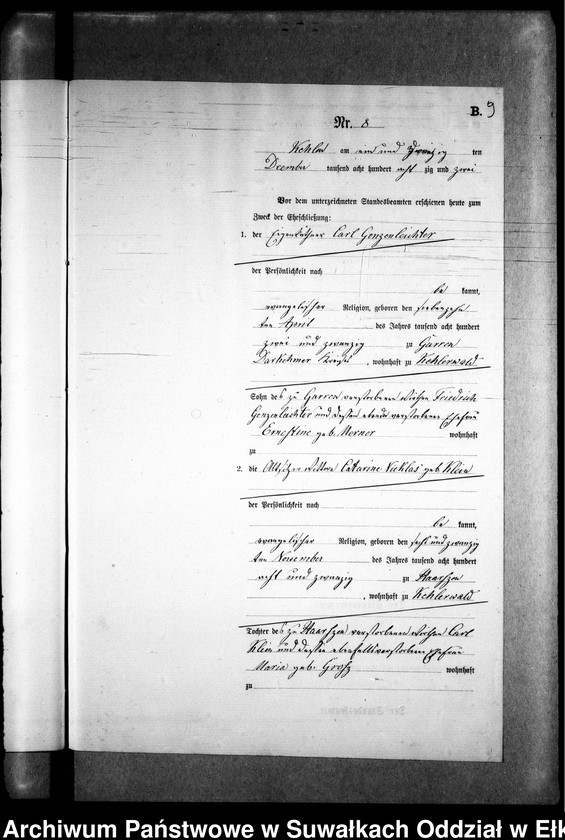 B. 9
Nr. 8
Kehlen am ein und zwanzig ten
December tausend acht hundert acht zig und zwei
Vor dem unterzeichneten Standesbeamten erschienen heute zum
Zweck der Eheschließung:
1. der Eigenkäthner Carl Gonzenleichter
der Persönlichkeit nach
be kannt,
evangelischer Religion, geboren den siebenzehn
ten April des Jahres tausend acht hundert
zwei und zwanzig zu Garren
Darkehmer Kreises, wohnhaft zu Kehlerwald
Sohn des zu Garren verstorbenen Friedrich
Gonzenleichter und dessen verstorbenen Ehefrau
Ernestine geb. Werner wohnhaft
zu
2. die Wittwe Catarine Nicklas geb. Klein
der Persönlichkeit nach
be kannt,
evangelischer Religion, geboren den sechs und zwanzig
ten November des Jahres tausend acht hundert
acht und zwanzig zu Haarszen
, wohnhaft zu Kehlerwald
Tochter des zu Haarszen verstorbenen Carl
Klein und dessen ebenfalls verstorbenen Ehefrau
Maria geb. wohnhaft
zu
Archiwum Państwowe w Suwałkach Oddział w Ełk